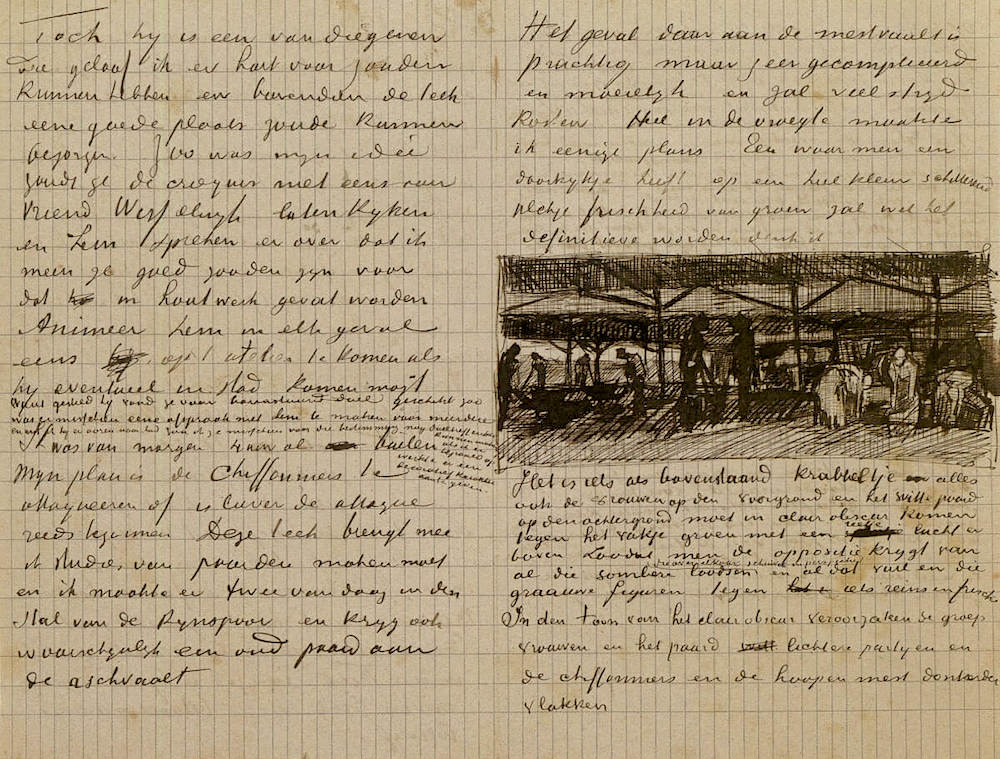 Toch hy is een van diegenen
die geloof ik er hart voor zouden
kunnen hebben en bovendien de teek
eene goede plaats zoude kunnen
bezorgen. Zoo was myn idée
zoudt ge de croquis niet eens aan
vriend Wisselingh laten kyken
en hem spreken er over dat ik
meen ze goed zouden zyn voor
dat in houtwerk gevat worden
Animeer hem in elk geval
eens op 't atelier te komen als
hy eventueel in stad komen mogt
was er misschien eene afspraak met hem te maken voor meerdere
'k was van morgen 4 uur al buiten
Myn plan is de Chiffonniers te
attaqueeren of is liever de attaque
reeds begonnen Deze teek brengt mee
ik studies van paarden maken moet
en ik maakte er twee van daag in den
stal van de Rynspoor en kryg ook
waarschynlyk een oud paard aan
de aschvaalt
Het geval daar aan de mestvaalt is
prachtig maar zeer gecompliceerd
en moeielyk en zal veel stryd
kosten Heel in de vroegte maakte
ik eenige plans Een waar men een
doorkykje heeft op een heel klein schitterend
plekje frischheid van groen zal wel het
definitieve worden denk ik
Het is iets als bovenstaand krabbeltje alles
ook de vrouwen op den voorgrond en het witte paard
op den achtergrond moet in clair obscur komen
tegen het vakje groen met een reepje lucht er
boven zoodat men de oppositie krygt van
al die sombere loodsen en al dat vuil en die
graauwe figuren tegen iets reins en frisch
In den toon van het clair obscur veroorzaken de groep
vrouwen en het paard lichtere partyen en
de chiffonniers en de hoopen mest donkerder
vlakken